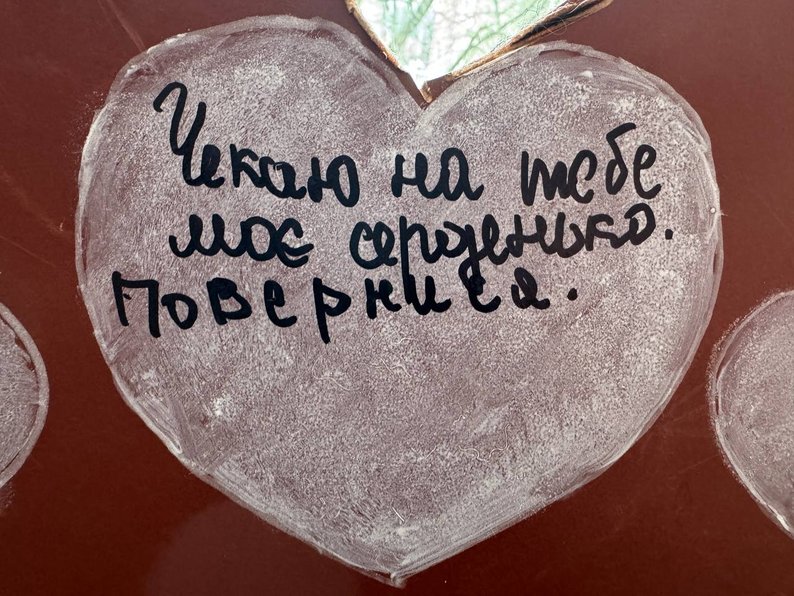 Чекаю на тебе
моє серденько.
Повернися.